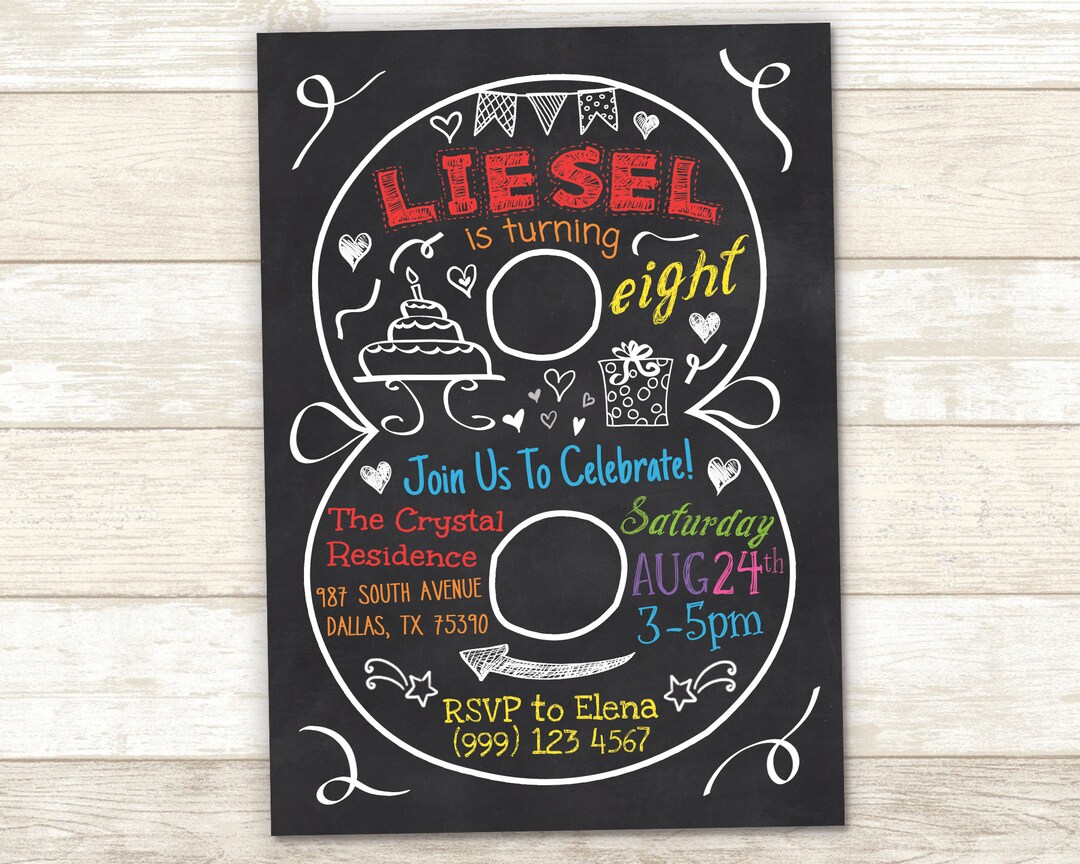 LIESEL
is turning
eight
Join Us To Celebrate!
The Crystal
Residence
987 SOUTH AVENUE
DALLAS, TX 75390
Saturday
AUG 24th
3-5pm
RSVP to Elena
(999) 123 4567